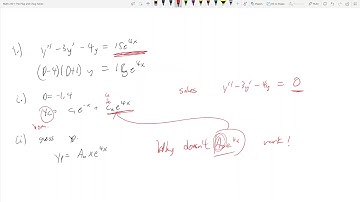 1.) y'' - 3y' - 4y = 15e^{4x}
(D-4)(D+1)y = 15e^{4x}
(i.) D = -1, 4
solves y'' - 3y' - 4y = 0
y_c = c_1 e^{-x} + c_2 e^{4x}
(ii) guess
Why doesn't Ae^{4x} work!
y_p = A_0 x e^{4x}